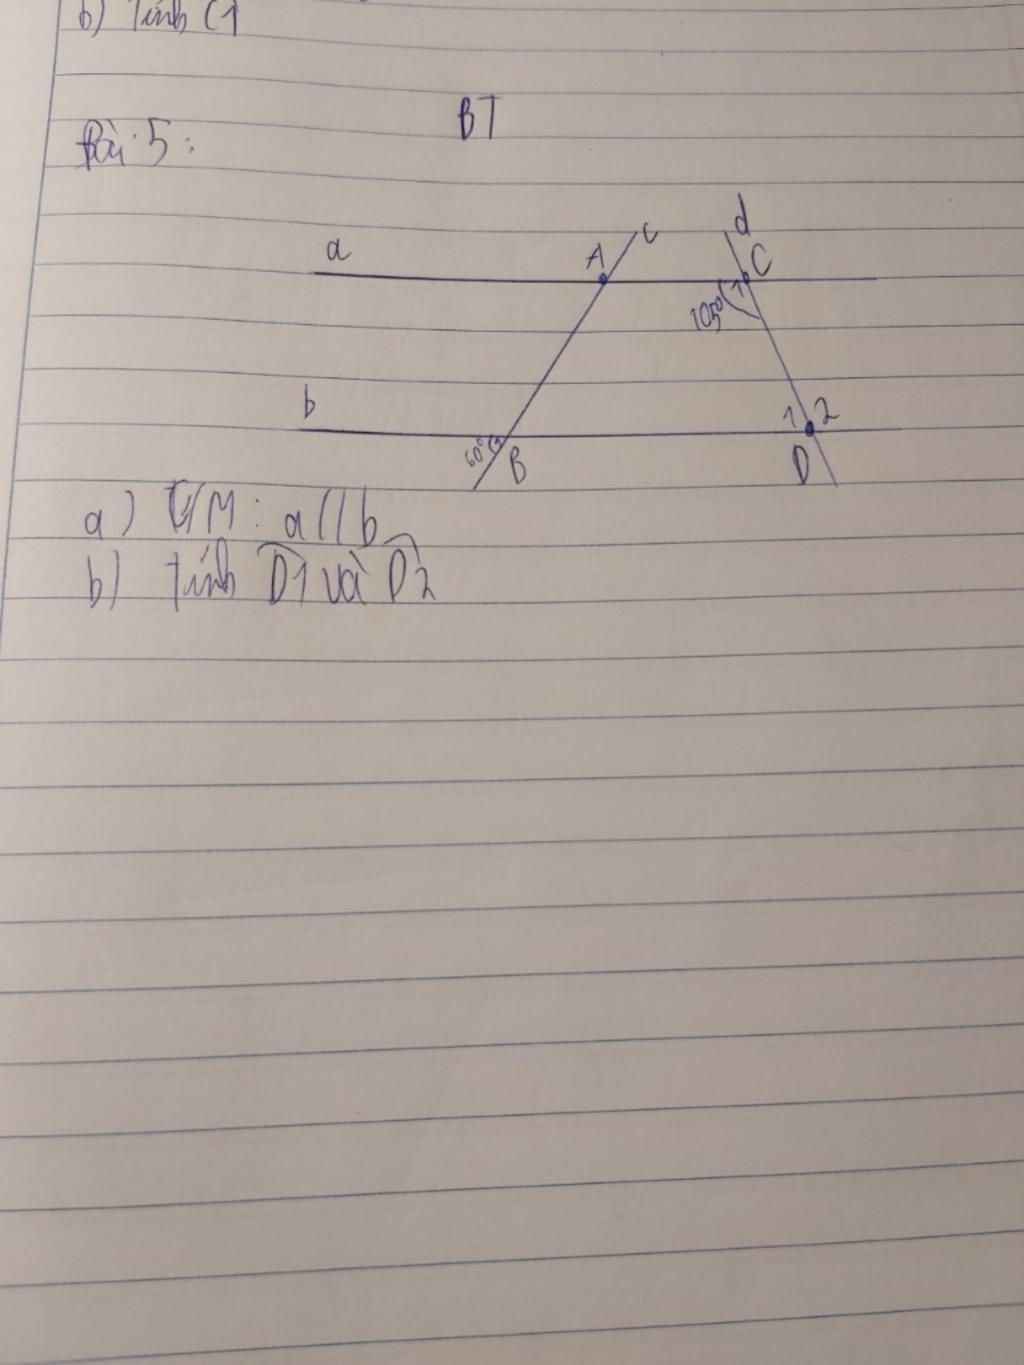 b) Tính C1
BT
Bài 5:
a
A
c
d
C
1
105°
b
60°
B
1 2
D
a) CM: a//b
b) tính D1 và D2